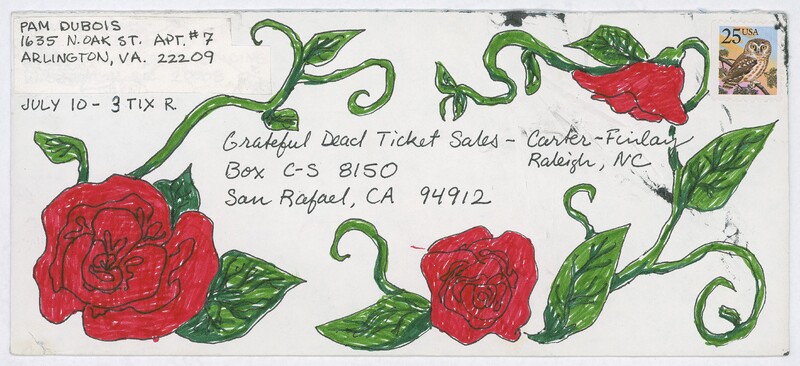 PAM DUBOIS
1635 N. OAK ST. APT. #7
ARLINGTON, VA. 22209
JULY 10 - 3 TIX R.
25 USA
Grateful Dead Ticket Sales - Carter-Finlay
Raleigh, NC
Box C-S 8150
San Rafael, CA 94912